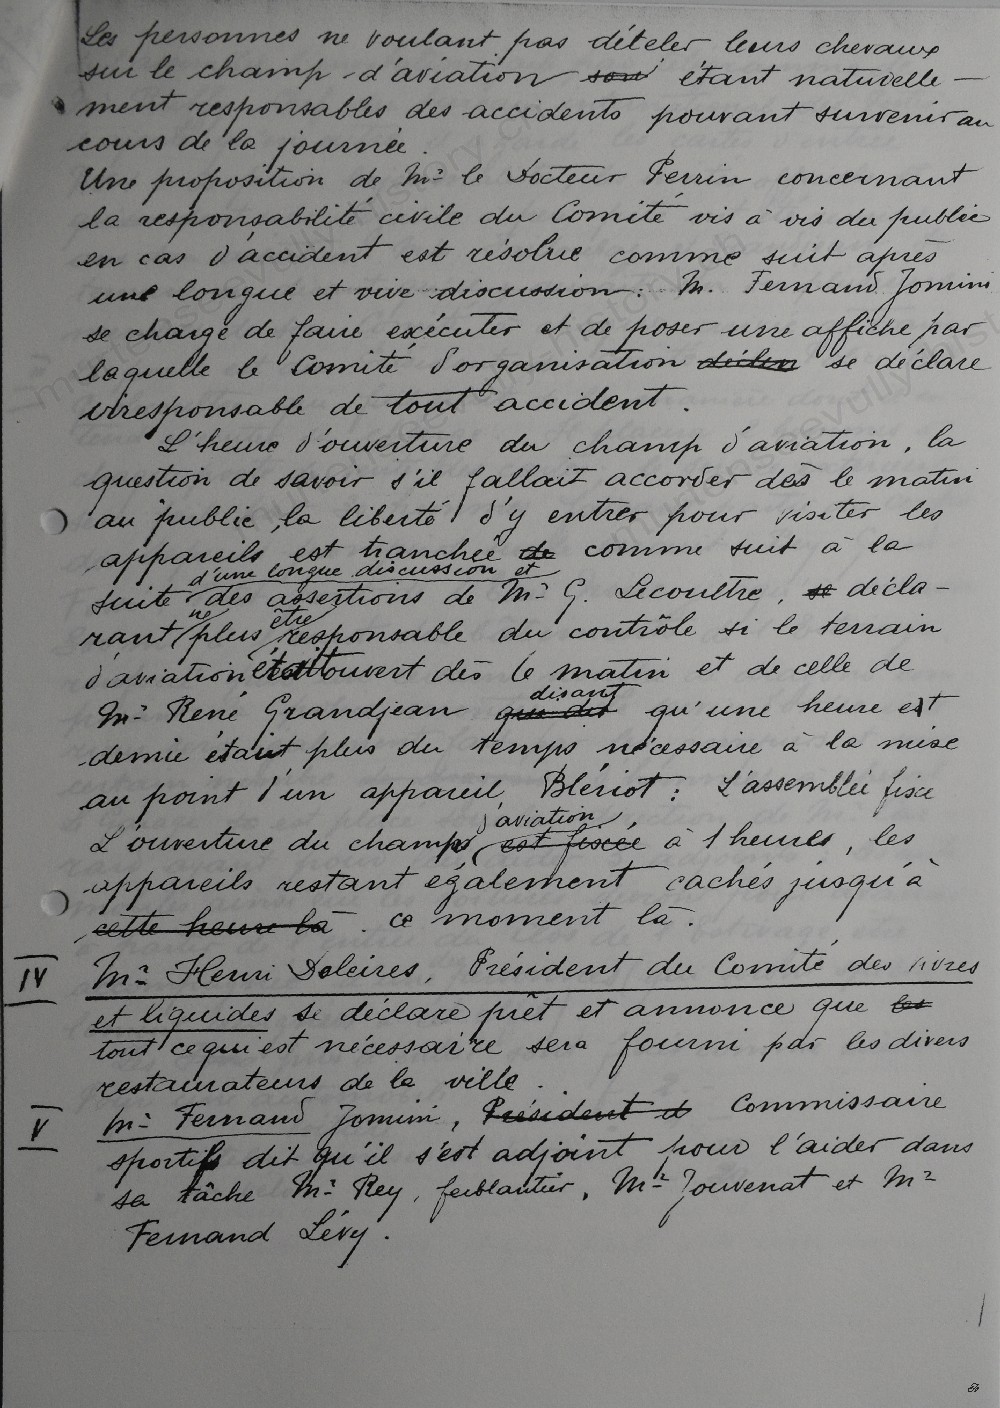 Les personnes ne voulant pas dételer leurs chevaux
sur le champ d'aviation son étant naturelle-
ment responsables des accidents pouvant survenir au
cours de la journée.
Une proposition de Mr le Docteur Perrin concernant
la responsabilité civile du Comité vis à vis du public
en cas d'accident est résolue comme suit après
une longue et vive discussion : M. Fernand Jomini
se charge de faire exécuter et de poser une affiche par
laquelle le Comité d'organisation déclen se déclare
irresponsable de tout accident.
L'heure d'ouverture du champ d'aviation, la
question de savoir s'il fallait accorder dès le matin
au public la liberté d'y entrer pour visiter les
appareils est tranchée de comme suit à la
d'une longue discussion et
suite des assertions de Mr G. Lecoultre, se décla-
ne être
rant plus responsable du contrôle si le terrain
d'aviation était ouvert dès le matin et de celle de
disant
Mr René Grandjean qui dit qu'une heure et
demie était plus du temps nécessaire à la mise
au point d'un appareil Blériot : L'assemblée fixe
d'aviation
L'ouverture du champ est fixée à 1 heures, les
appareils restant également cachés jusqu'à
cette heure là. ce moment là.
IV Mr Henri Deleires, Président du Comité des vivres
et liquides se déclare prêt et annonce que les
tout ce qui est nécessaire sera fourni par les divers
restaurateurs de la ville.
V Mr Fernand Jomini, Président d Commissaire
sportif dit qu'il s'est adjoint pour l'aider dans
sa tâche Mr Rey, ferblantier, Mr Jouvenat et Mr
Fernand Lévy.